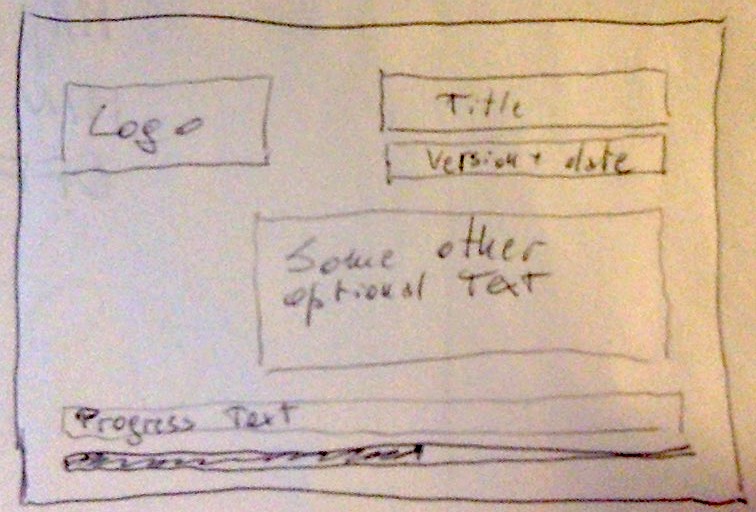 Logo
Title
Version + date
Some other
optional Text
Progress Text